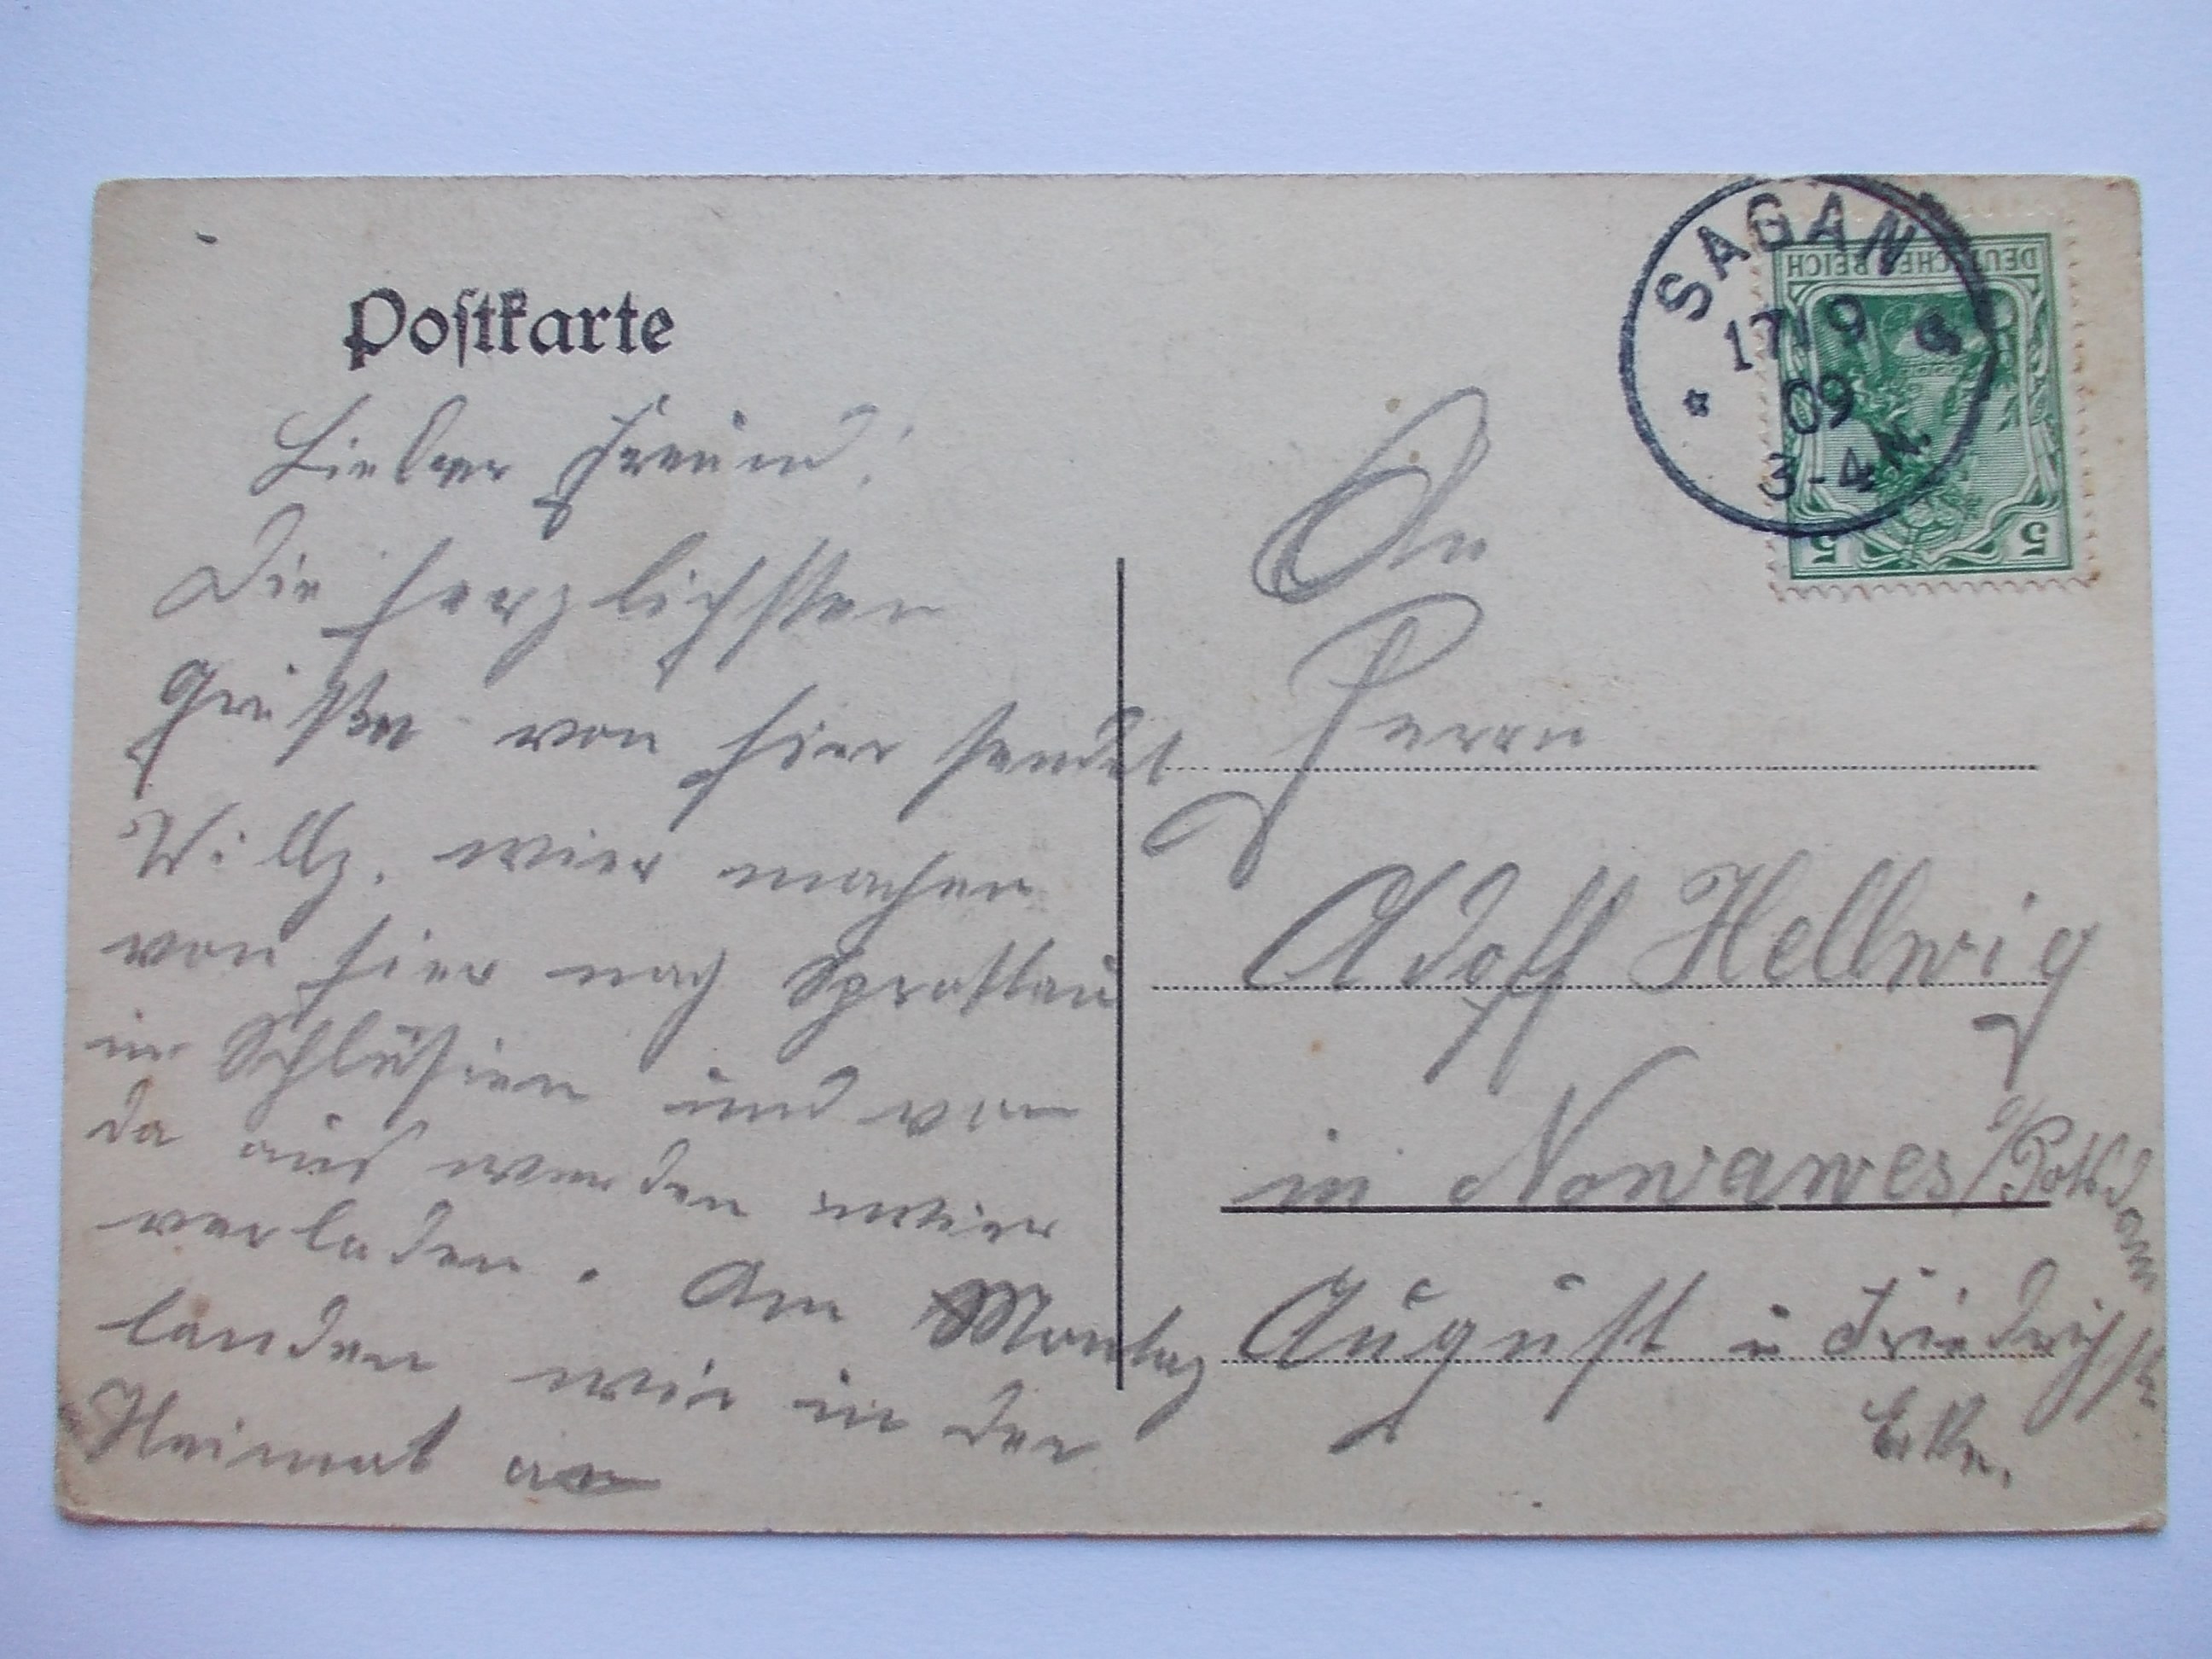 Postkarte
Lieber Freund!
Die herzlichsten
Grüßen von hier sendet
Willy. wier machen
von hier nach Sprottau
in Schlüsien und von
da aus werden wier
verladen. Am Montag
landen wir in der
Heimat an
SAGAN
17 9
09
3-4 N.
DEUTSCHES REICH
5 5
An
Herrn
Adolf Hellwig
in Nowawes b/Potsdam
August u Friedrichstr
Eke.